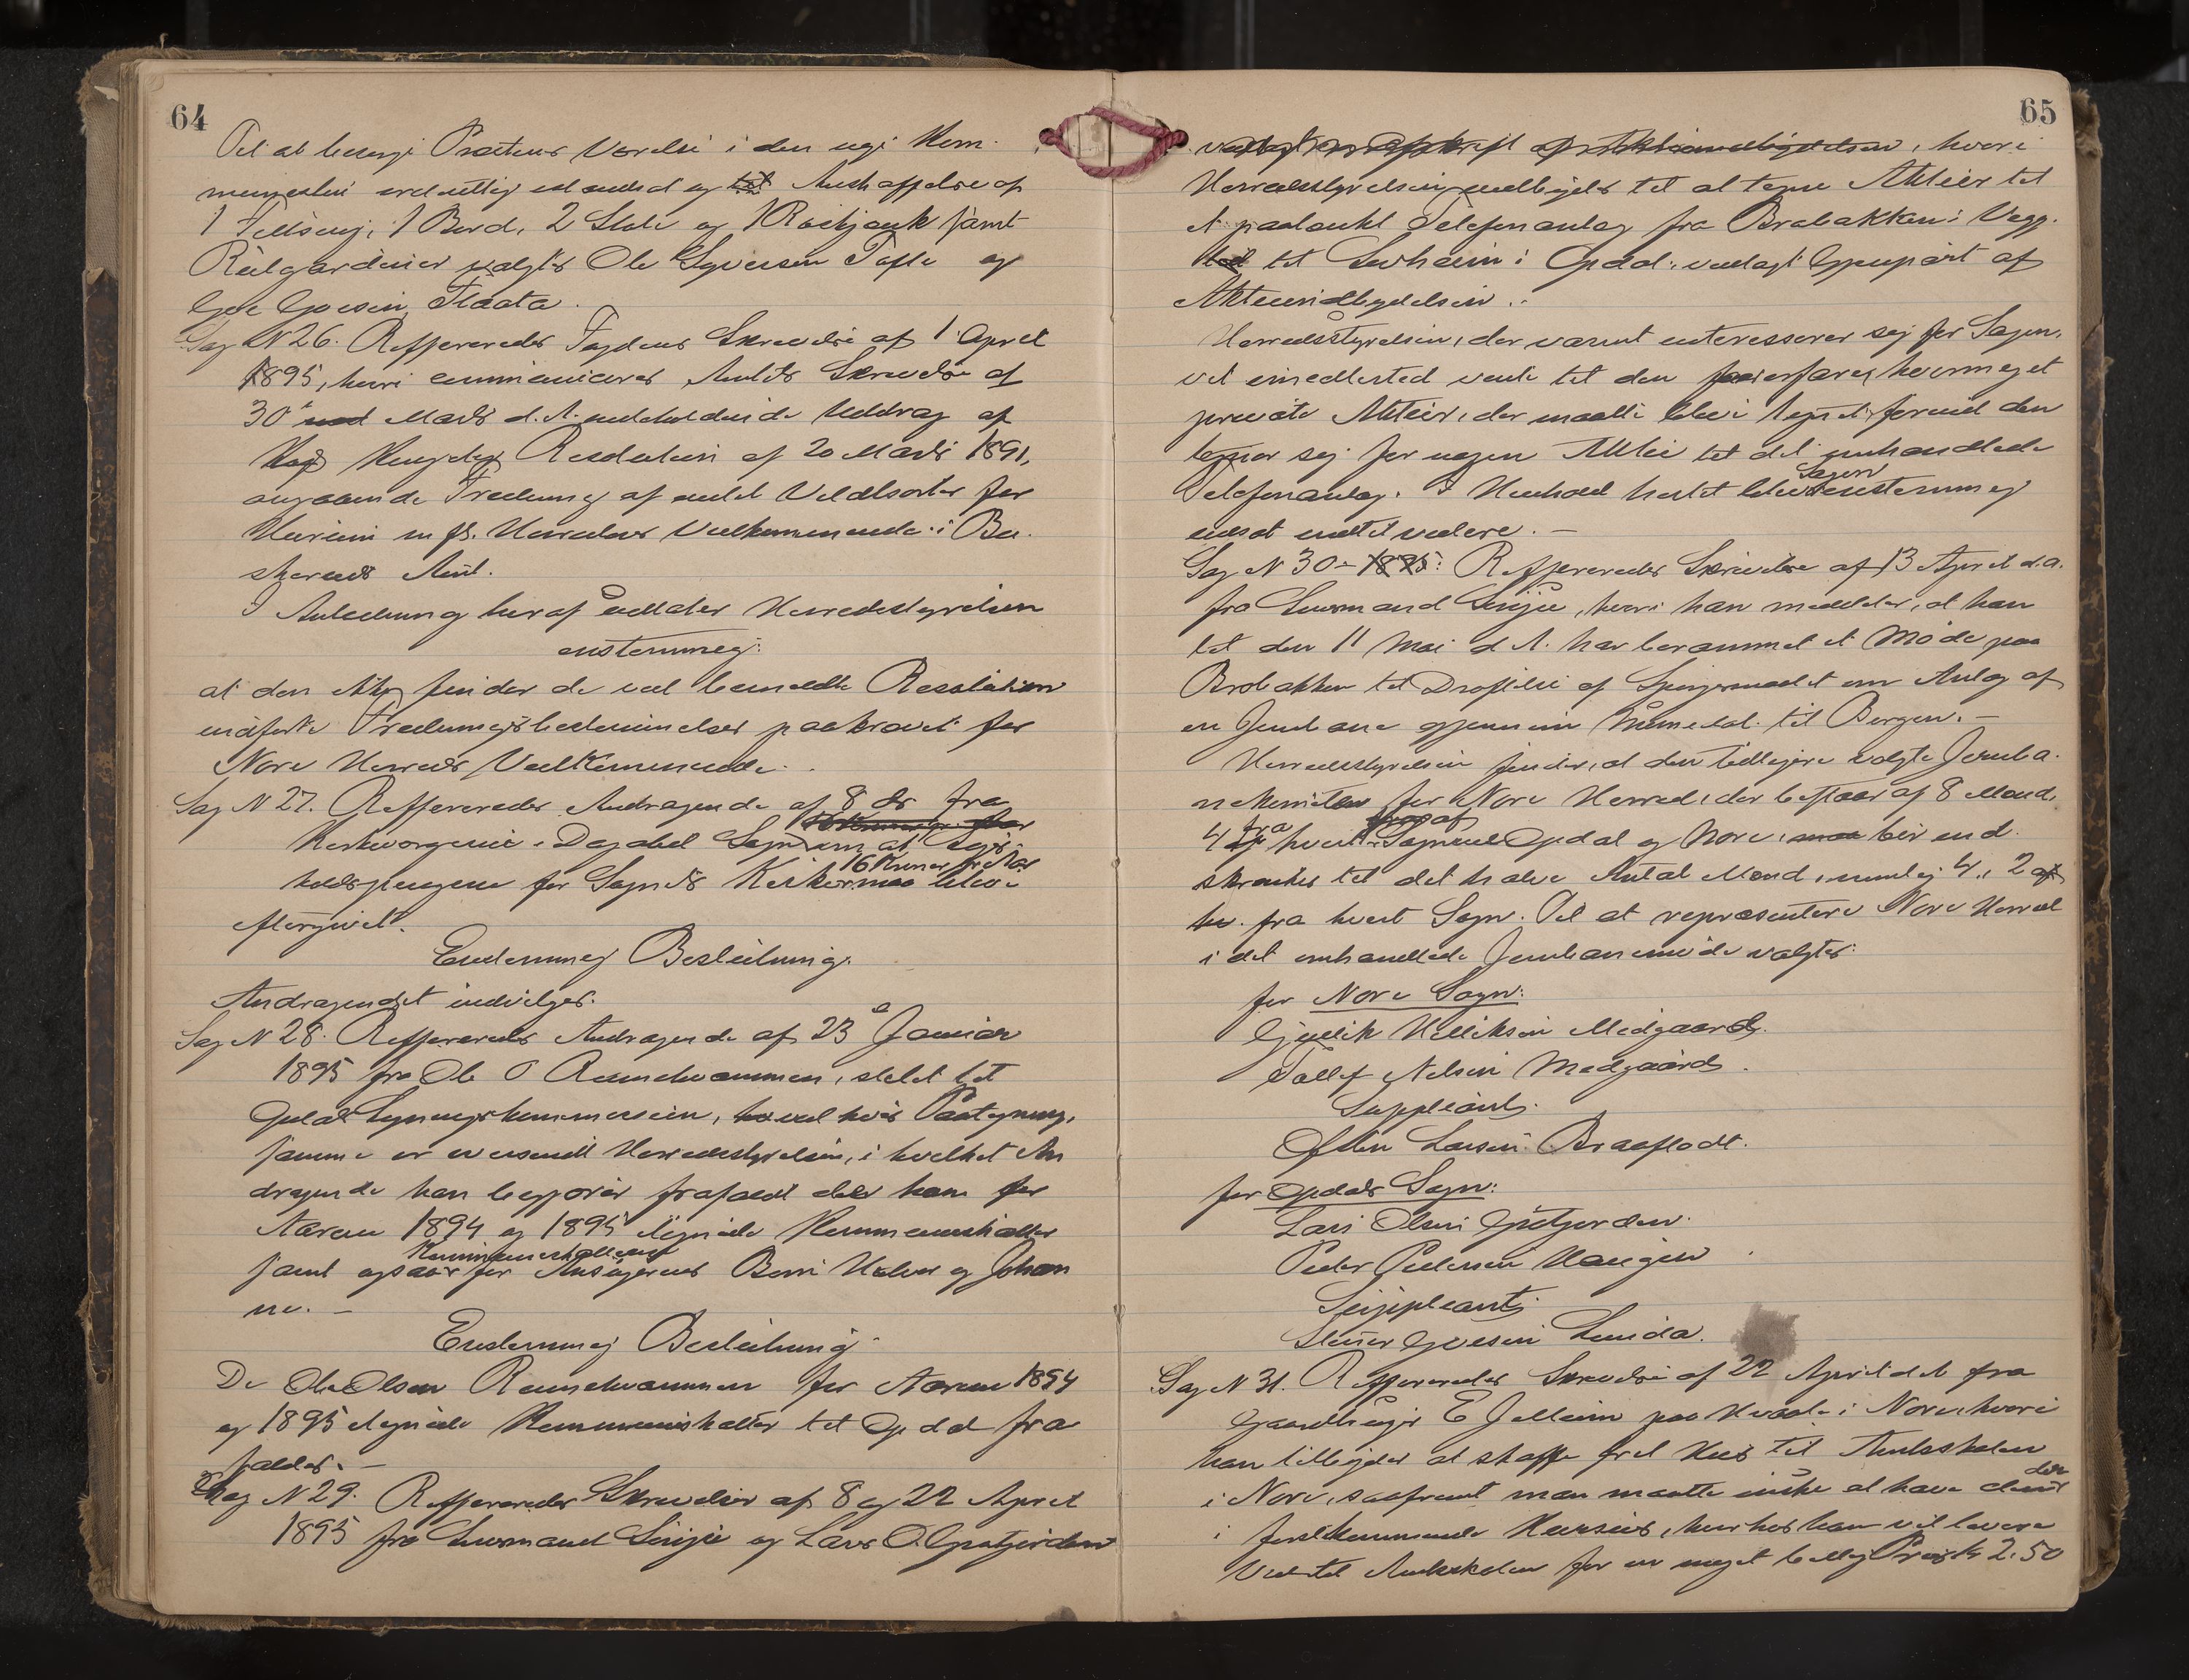 64
Til at besørge Præstens Værelse i den nye Kom-
munestue ordentlig istandsat og til Anskaffelse af
1 Feltseng, 1 Bord, 2 Stole og 1 samt
Rulgardiner valgtes Ole Syversen Tofte og
Goesen Flaata.
Sag N 26. Reffereredes Fogdens Skrivelse af 1 April
1895, hvori communiceres Amtets Skrivelse af
30 Marts d. A. indeholdende Uddrag af
Kongelig Resolution af 20 Marts 1891,
angaaende Fredning af endel Veldtsorter for
m. fl. Herreders Vedkommende i Bu-
skeruds Amt.
I Anledning heraf udtaler Herredsstyrelsen
enstemmig:
at den ikke finder de ved bemeldte Resolution
indførte Fredningsbestemmelser paakrævet for
Nore Herreds Vedkommende.
Sag N 27. Reffereredes Andragende af 8 ds fra
Kirkeværgerne i Dagalid Sogn om at
holdspengene for Sogn 16 Kroner blive
eftergivet.
Enstemmig Beslutning:
Andragendet indvilges.
Sag N 28. Reffereredes Andragende af 23 Januar
1895 fra Ole O , stilet til
Opdal Ligningskommission, ved hvis Paategning,
samme er oversendt Herredsstyrelsen, i hvilket An
dragende han begjærer frafaldt de ham for
Aarene 1894 og 1895 ilignede Kommuneskatter
samt ogsaa Kommuneskatterne for Ansøgerens Børn Halvor og Johan
ne. –
Enstemmig Beslutning:
De Ole Olsen for Aarene 1894
og 1895 ilignede Kommuneskatter til Opdal fra
faldes. –
Sag N 29. Reffereredes Skrivelser af 8 og 22 April
1895 fra Lensmand og Lars O.
65
vedlagt en Afskrift af Aktieindbydelsen, hvori
Herredsstyrelsen indbydes til at tegne Aktier til
et paatænkt Telefonanlæg fra Brobakken i Vegg-
til i Opdal, vedlagt Gjenpart af
Aktieindbydelsen.
Herredsstyrelsen, der varmt interesserer sig for Sagen,
vil imidlertid vente til den faar erfaret hvormeget
private Aktier, der maatte blive tegnet, forend den
tegner sig for nogen Aktie til det omhandlede
Telefonanlæg. I Henhold hertil blev Sagen enstemmig
udsat indtil videre. –
Sag N 30 – 1895: Reffereredes Skrivelse af 13 April d.a.
fra Lensmand , hvori han meddeler, at han
til den 11 Mai d. A. har berammet et Møde paa
Brobakken til Drøftelse af Spørgsmaalet om Anlæg af
en Jernbane gjennem Numedal til Bergen. –
Herredsstyrelsen finder, at den tidligere valgte Jernba-
nekomite for Nore Herred, der bestaar af 8 Mænd,
4 fra hvert af Sognene Opdal og Nore, bør ind-
skrænkes til det halve Antal Mænd, nemlig 4, 2
fra hvert Sogn. Til at repræsentere Nore Herred
i det omhandlede Jernbanemøde valgtes:
for Nore Sogn:
Gjullik Medgaard.
Tollef Nelsen Medgaard.
Suppleant:
Østen Larsen Braaflodt.
for Opdals Sogn:
Lars Olsen
Peder Pedersen Haugen.
Suppleant:
Steiner Goesen .
Sag N 31. Reffereredes Skrivelse af 22 April d A fra
E Jellum paa i Nore, hvori
han tilbyder at skaffe frit Hus til Amtsskolen
i Nore, saafremt man maatte ønske at have den
i førstkommende , hvorhos han vil levere
Ved til Amtsskolen for en meget billig Pris, Kr. 2.50